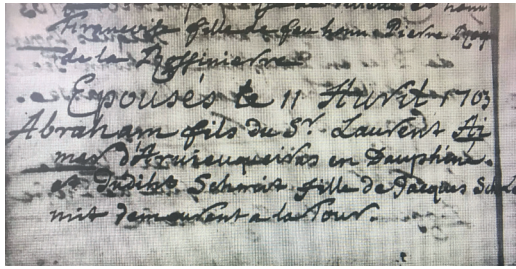 françois fille de feu honn. Pierre
de la Roffinierre
Epousés le 11 Avril 1703
Abraham fils du Sr. Laurent Ai
mer en Dauphiné.
et Judith Schmit fille de Jacques Sch
mit demeurent a la Tour.